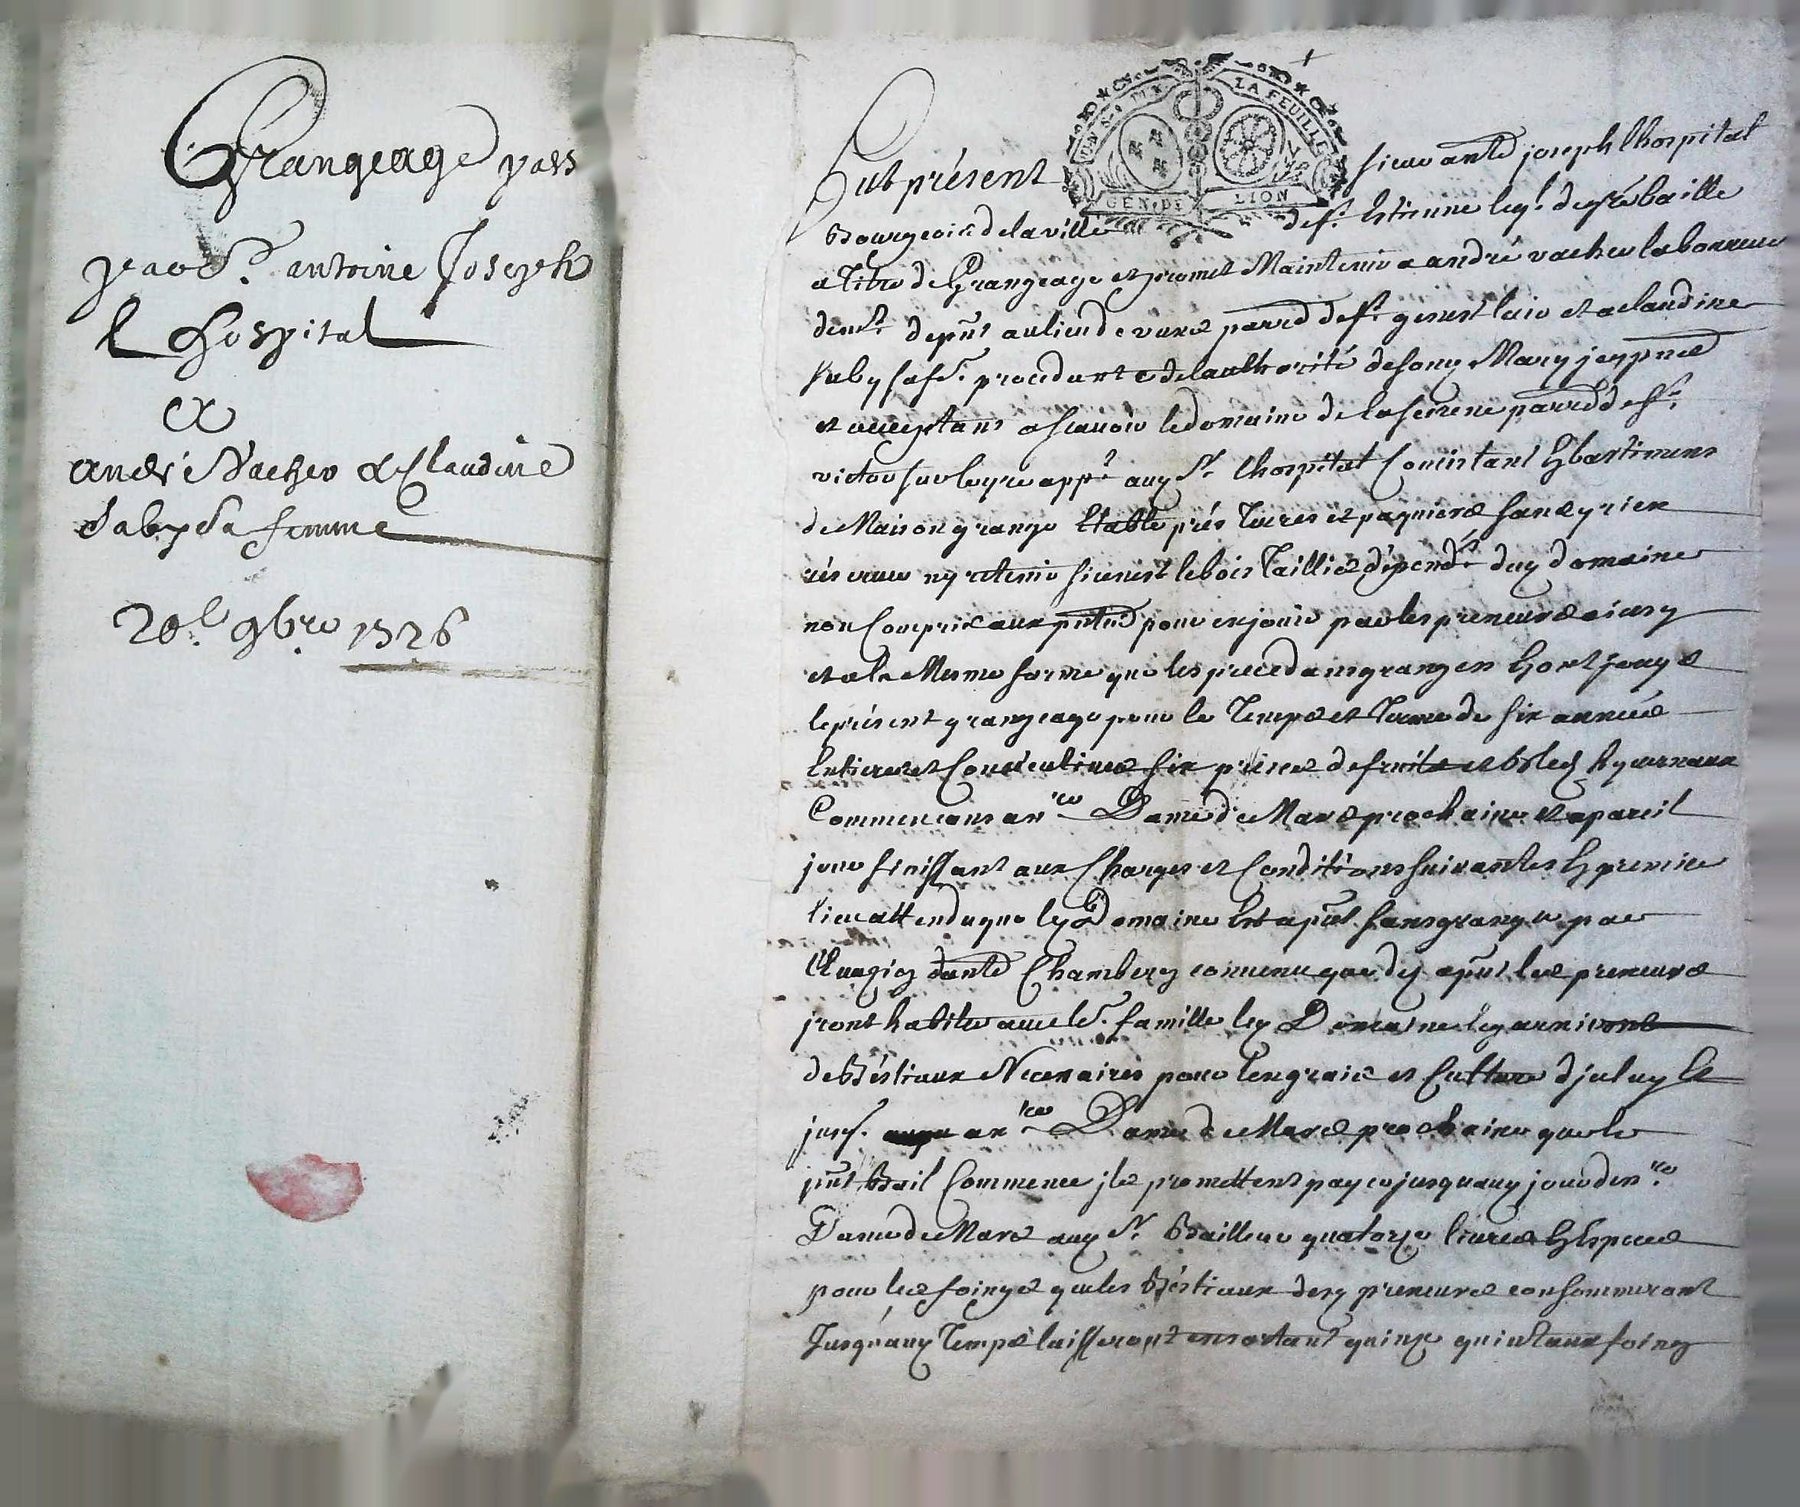 Grangeage pass
par Sr. antoine Joseph
L Hospital
a
andré Vacher & Claudine
Saby Sa femme
20e. 9bre 1726
UN SOL DIX LA FEUILLE
GEN. DE LION
Fut présent sieur antē joseph lhospital
Bourgeois de la ville de St. Estienne leql. de gré baille
a titre de Grangeage et promet Maintenir a andré vacher laboureur
demt. depnt au lieu de parrē de St. genest lair et a claudine
saby sa fē. procedante de lauthorité de son Mary jcy pnte
et acceptant ascavoir le domaine de la parrē de St.
victor sur loyre appt. aud Sr. lhospital Consistant En bastimens
de Maison grange Etable prés terres et paquiers sans y rien
réserver ny retenir si ce nest le bois taillis dépendt. dud domaine
non Compris aux pntes pour en jouir par les preneurs ainsy
et de la Mesme forme que les precedans grangers En ont jouy
le présent grangeage pour le Temps et Terme de six années
Entieres et Consecutives six prises de fruits et bleds hyvernaux
Commencans a nre Dame de Mars prochaine et a pareil
jour finissant aux Charges et Conditions suivantes En premier
lieu attendu que led Domaine Est apnt sans granger par
antē Chambery convenu que des apnt les preneurs
jront habiter avec le. famille led Domaine le garniront
de Bestiaux Necessaires pour lengrais et Culture djceluy Et
jusq. a nre Dame de Mars prochaine que le
pnt Bail Commence jls promettent payer jusquaud jour de nre
Dame de Mars aud Sr. Bailleur quatorze livres En Especes
pour les foings que les Bestiaux desd preneurs consommeront
Jusquaud Temps laisseront en sortant quinze quintaux foing